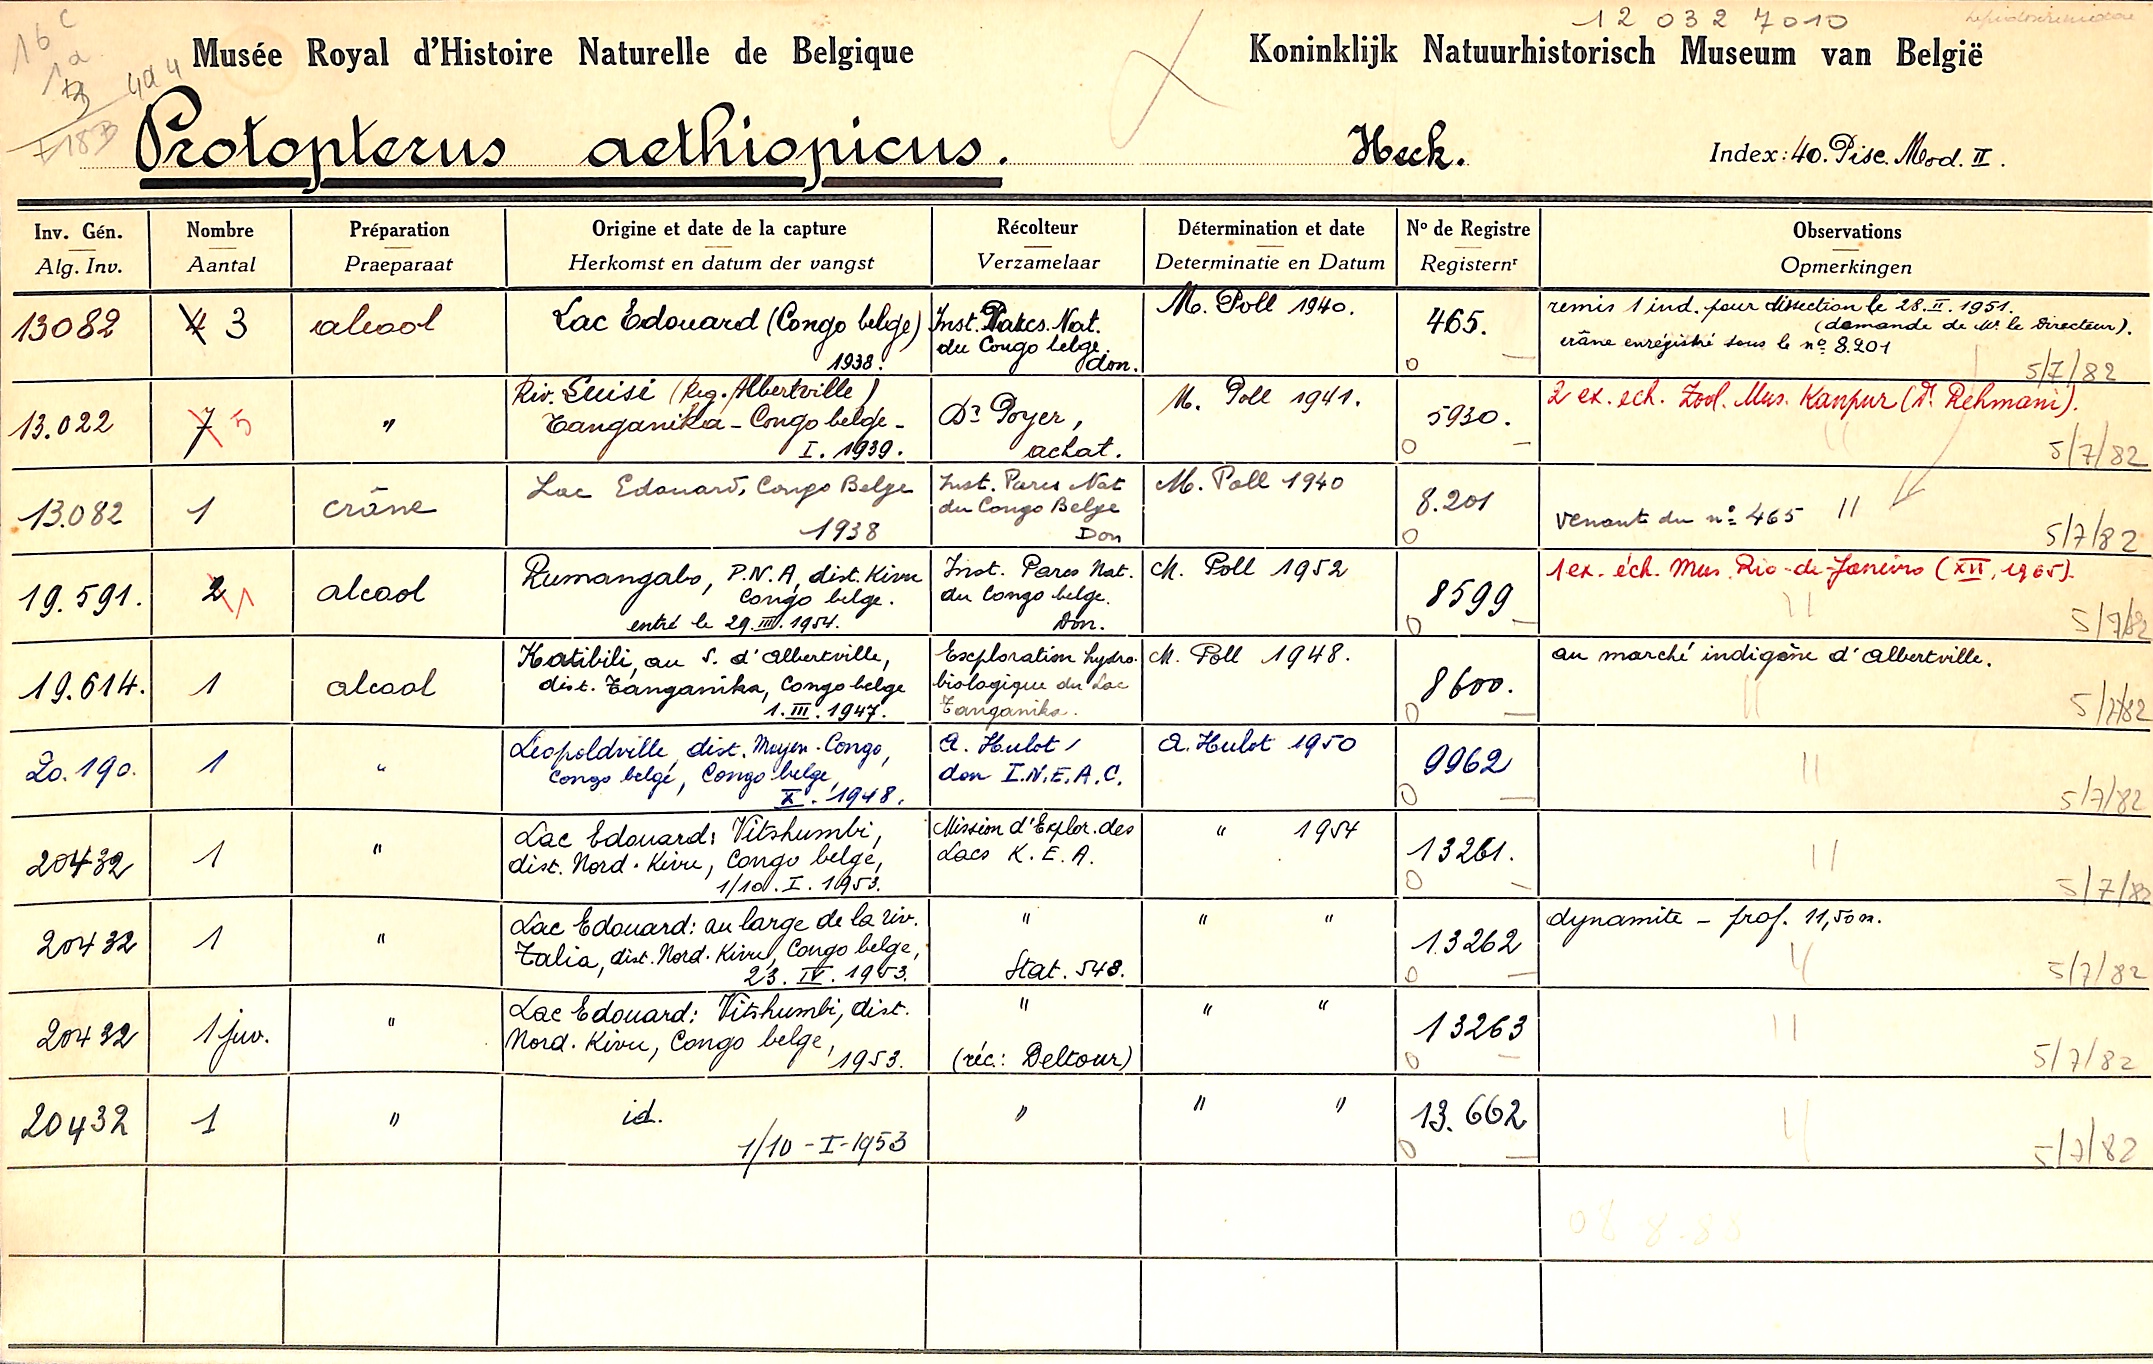 12 032 7010
Lepidosirenidae
16 C
1a
4a4
18B
Musée Royal d'Histoire Naturelle de Belgique
Koninklijk Natuurhistorisch Museum van België
Protopterus aethiopicus. Heck. Index: 40. Pisc. Mod. II.
Inv. Gén. Nombre Préparation Origine et date de la capture Récolteur Détermination et date No de Registre Observations
Alg. Inv. Aantal Praeparaat Herkomst en datum der vangst Verzamelaar Determinatie en Datum Registernr Opmerkingen
13082 4 3 alcool
Lac Edouard (Congo belge)
1938.
Inst. Parcs. Nat.
du Congo belge.
don.
M. Poll 1940.
465.
remis 1 ind. pour dissection le 28.II.1951.
(demande de Mr. le Directeur).
crâne enrégistré sous le no. 8.201
5/7/82
13.022 7 5 "
Riv. Luisi (Reg. Albertville)
Tanganika - Congo belge -
I. 1939.
Dr. Poyer,
achat.
M. Poll 1941.
5930.
2 ex. ech. Zool. Mus. Kanpur (Dr. Rehmani).
5/7/82
13.082 1 crâne
Lac Edouard, Congo Belge
1938
Inst. Parcs Nat
du Congo Belge
Don
M. Poll 1940
8.201
venant du no. 465 "
5/7/82
19.591. 2 1 alcool
Rumangabo, P.N.A, dist. Kivu
Congo belge.
entré le 29.III.1954.
Inst. Parcs Nat.
du Congo belge.
Don.
M. Poll 1952
8599
1 ex. éch. Mus. Rio-de-Janeiro (XII, 1965).
"
5/7/82
19.614. 1 alcool
Katibili, au S. d'Albertville,
dist. Tanganika, Congo belge
1.III.1947.
Exploration hydro-
biologique du Lac
Tanganika.
M. Poll 1948.
8600.
au marché indigène d'Albertville.
"
5/7/82
20.190. 1 "
Léopoldville, dist. Moyen-Congo,
Congo belge, Congo belge,
X. 1948.
A. Hulot,
don I.N.E.A.C.
A. Hulot 1950
9962
"
5/7/82
20432 1 "
Lac Edouard: Vitshumbi,
dist. Nord-Kivu, Congo belge,
1/10.I.1953.
Mission d'Explor. des
Lacs K.E.A.
" 1954
13261.
"
5/7/82
20432 1 "
Lac Edouard: au large de la riv.
Talia, dist. Nord-Kivu, Congo belge,
23.IV.1953.
"
Stat. 548.
" "
13262
dynamite - prof. 11,50m.
"
5/7/82
20432 1 juv. "
Lac Edouard: Vitshumbi, dist.
Nord-Kivu, Congo belge,
1953.
"
(réc.: Delcour)
" "
13263
"
5/7/82
20432 1 "
id.
1/10-I-1953
"
" "
13.662
"
5/7/82
08.8.83